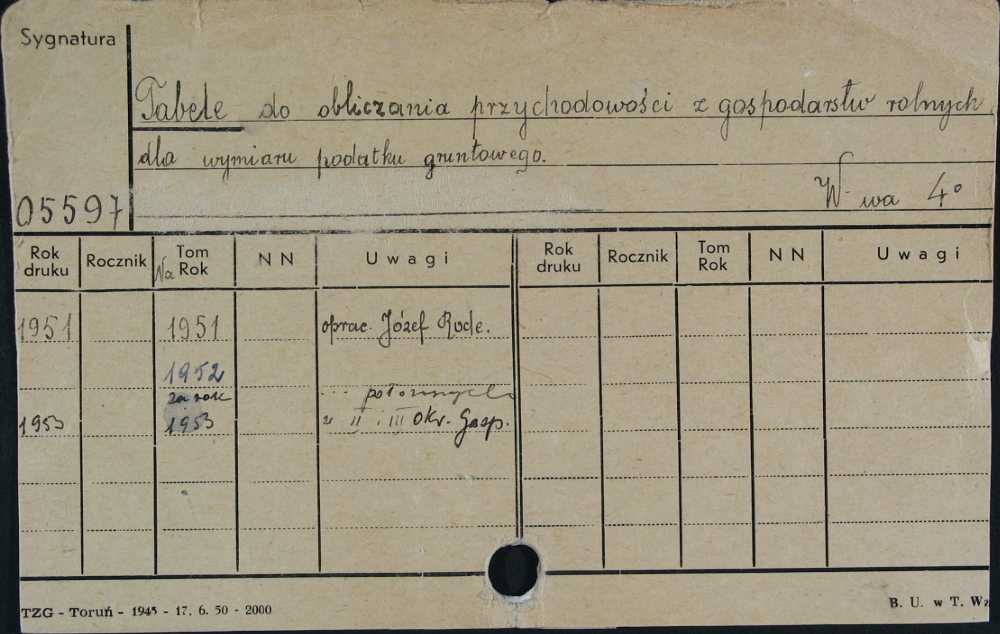 Sygnatura
Tabele do obliczania przychodowości z gospodarstw rolnych
dla wymiaru podatku gruntowego.
W-wa 4°
05597
Rok druku Rocznik Na Tom Rok NN Uwagi Rok druku Rocznik Tom Rok NN Uwagi
1951 1951 oprac. Józef Rode.
1952
za rok ... położonych
1953 1953 w II i III Okr. Gosp.
TZG - Toruń - 1945 - 17. 6. 50 - 2000 B. U. w T. Wz